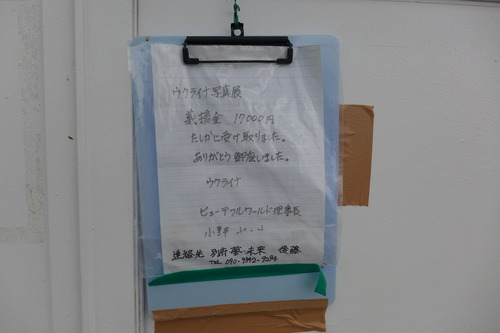 ウクライナ写真展
義援金 17000円
たしかに受け取りました。
ありがとう御座いました。
ウクライナ
ビューテフルワールド理事長
小野
連絡先 別府 夢・未来 後藤
TEL 090-9392-9294